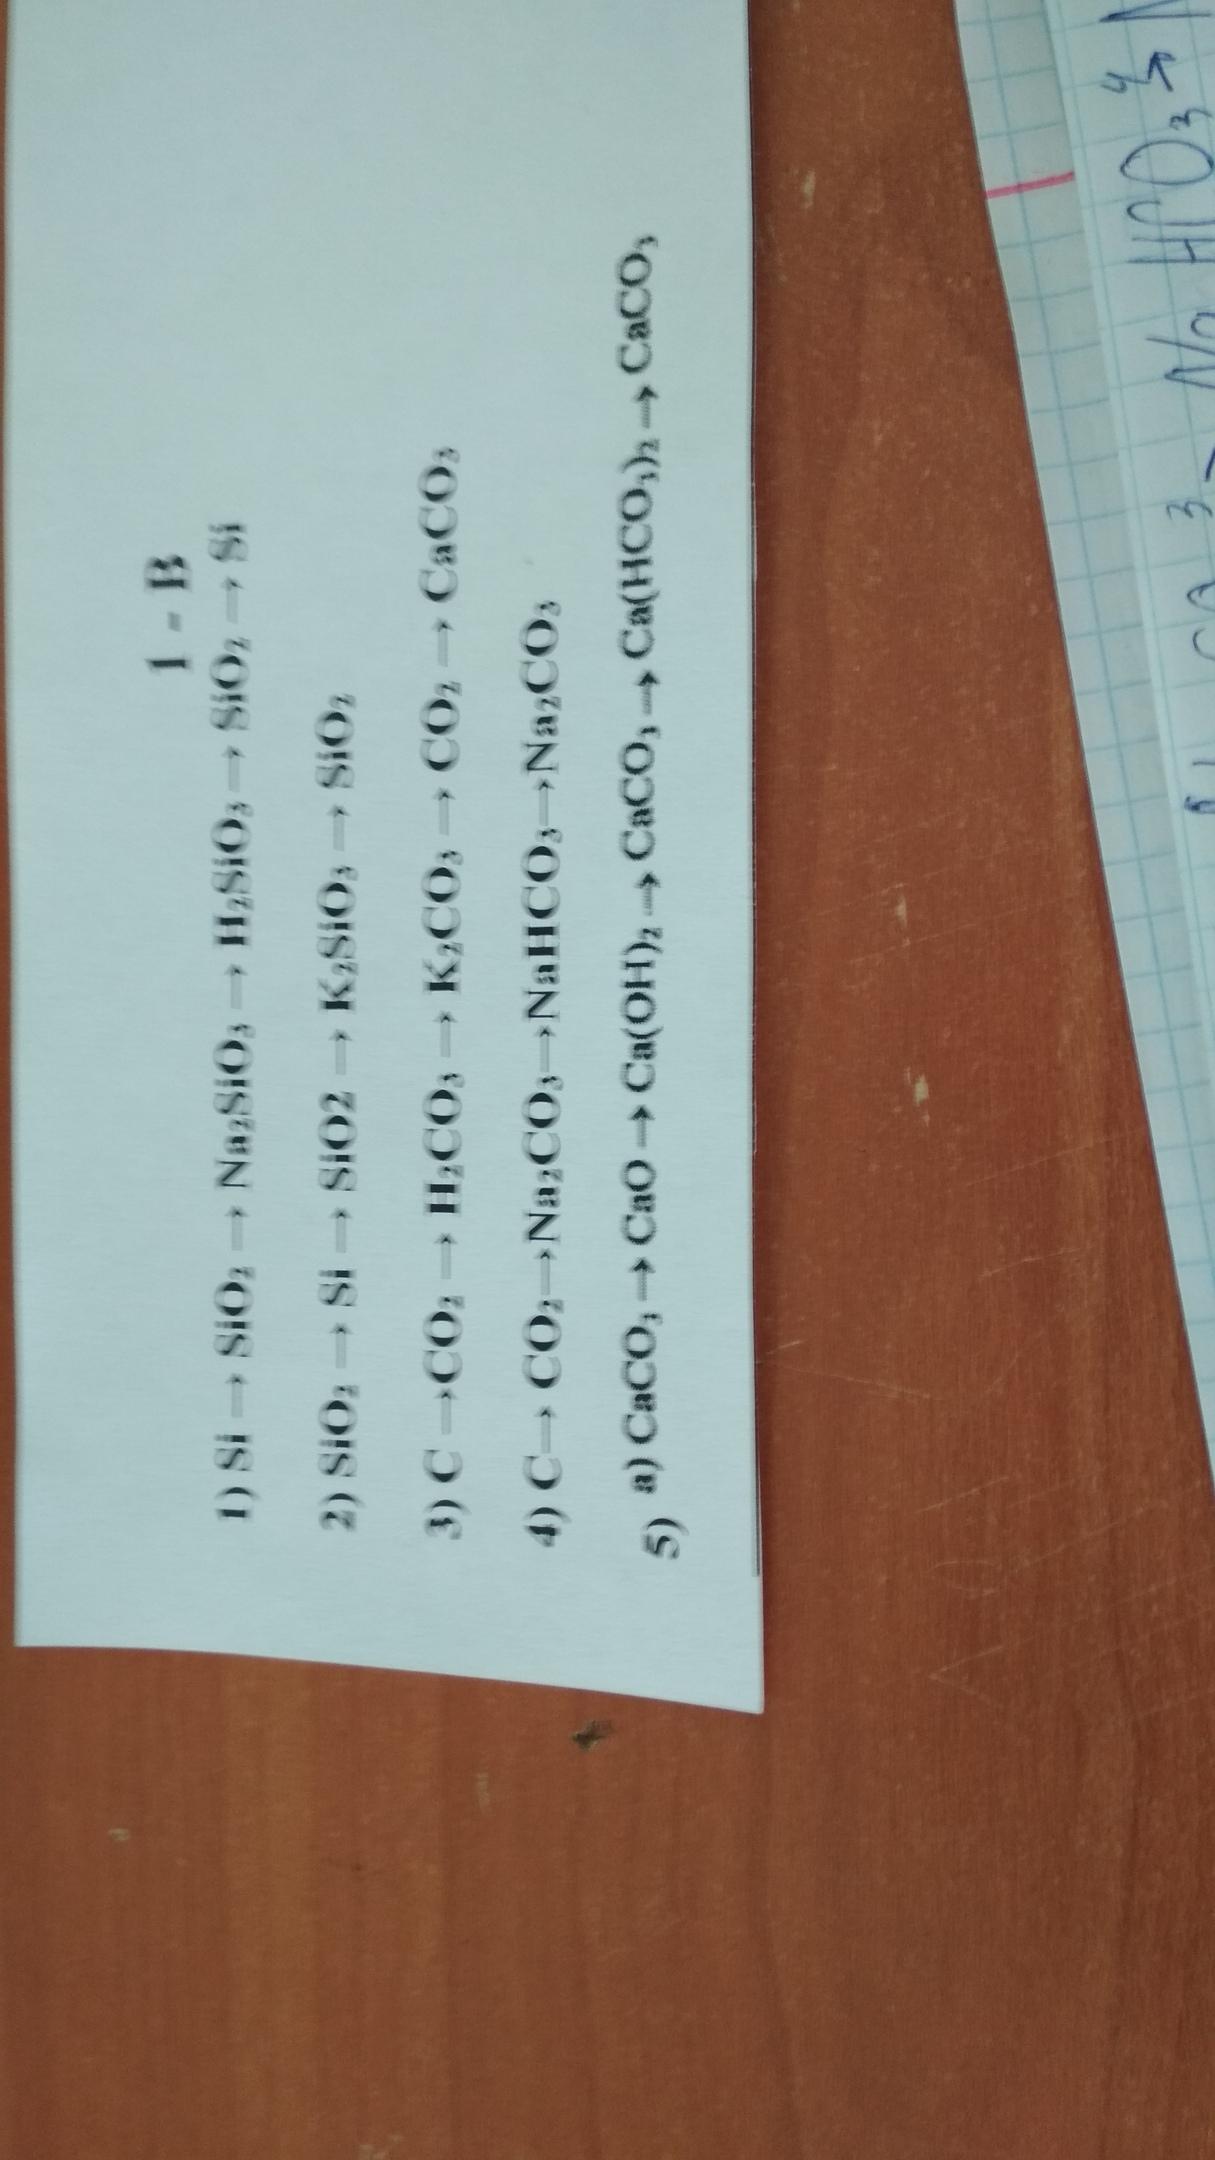 1 - В
1) Si → SiO₂ → Na₂SiO₃ → H₂SiO₃ → SiO₂ → Si
2) SiO₂ → Si → SiO2 → K₂SiO₃ → SiO₂
3) C →CO₂ → H₂CO₃ → K₂CO₃ → CO₂ → CaCO₃
4) C→ CO₂→Na₂CO₃→NaHCO₃→Na₂CO₃
5) а) CaCO₃ → CaO → Ca(OH)₂ → CaCO₃ → Ca(HCO₃)₂ → CaCO₃
HCO₃ 4→